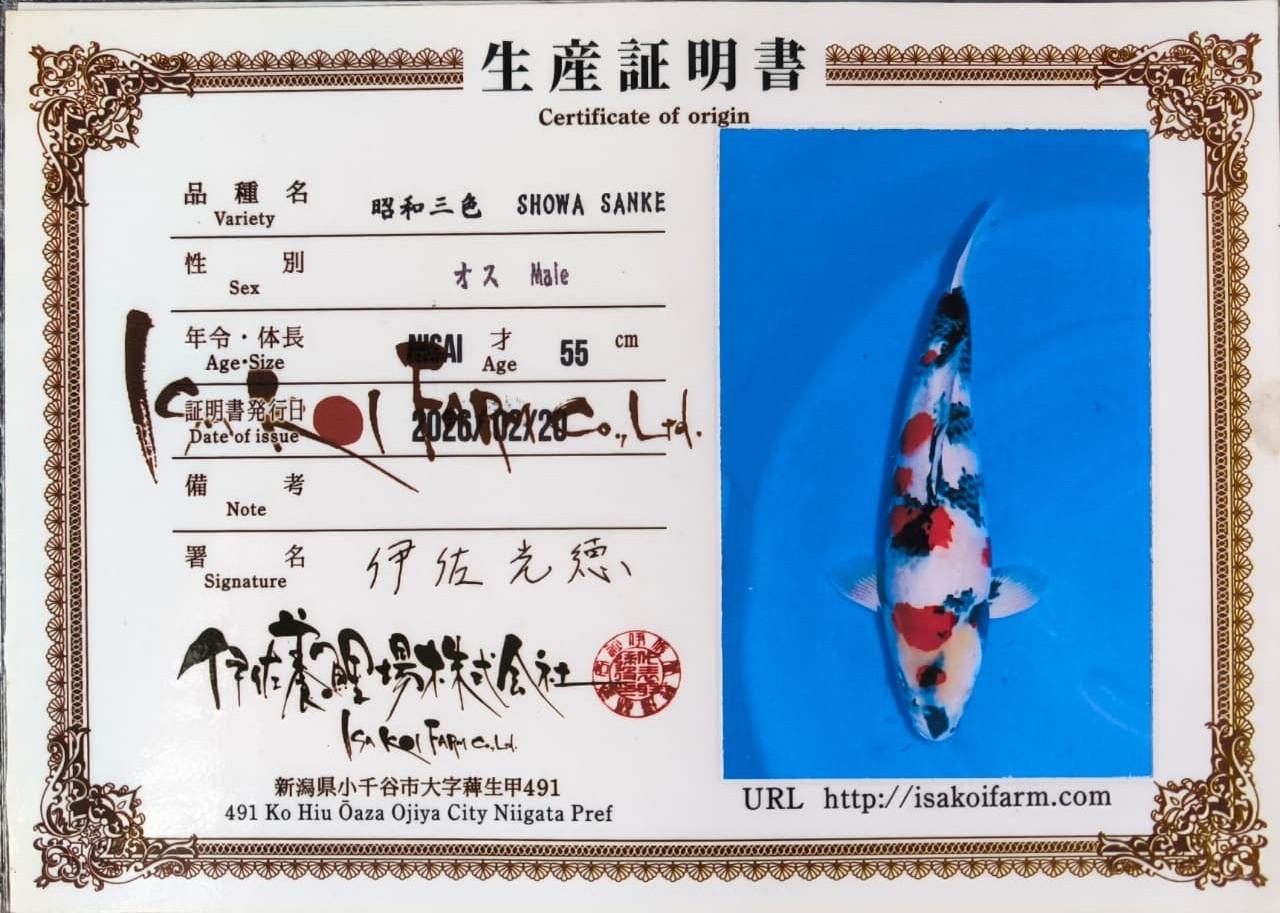 生産証明書
Certificate of origin
品種名
Variety
昭和三色 SHOWA SANKE
性別
Sex
オス Male
年令・体長
Age・Size
NISAI 才 Age 55 cm
証明書発行日
Date of issue
2026/02/20
Isa Koi Farm Co., Ltd.
備考
Note
署名
Signature
伊佐光徳
伊佐養鯉場株式会社
Isa Koi Farm Co., Ltd.
新潟県小千谷市大字薭生甲491
491 Ko Hiu Ōaza Ojiya City Niigata Pref
URL http://isakoifarm.com